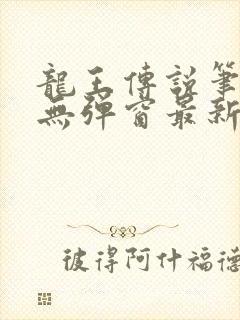 龍王傳說筆
無彈窗最新
彼得阿什福德